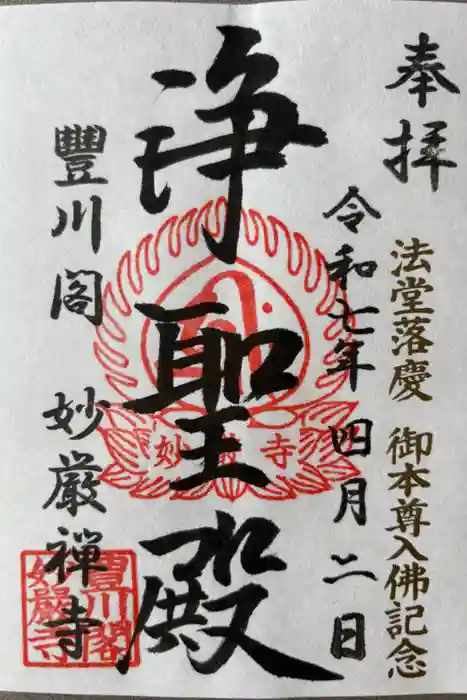 奉拝
法堂落慶 御本尊入佛記念
令和七年 四月二日
浄聖殿
妙嚴寺
豐川閣 妙厳禅寺
豐川閣
妙嚴寺